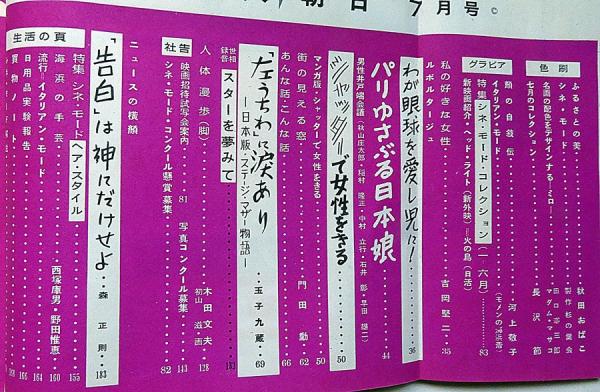 朝日 7月号 ©
色刷
ふるさとの美・・・秋田おばこ
シネ・モード・・・製作 杉の葉会
名画の配色をデザインする―ミロ―・・・田口泖三郎
七月のコレクション・・・マダム・マサコ
顔の自叙伝・・・長沢節
グラビア
イタリアン・モード・・・河上敬子
特集 シネ・モード・コレクション(一―六月)・・・83
新映画紹介・ヘッド・ライト(新外映)―火の鳥(日活)
私の好きな女性・・・吉岡堅二・・35
ルポルタージュ
わが眼球を愛し児に!・・・36
パリゆさぶる日本娘・・・44
男性井戸端会議(秋山庄太郎・稲村隆正・中村立行・石井彰・早田雄二)
シャッターで女性をきる・・・50
マンガ版・シャッターで女性をきる・・・50
街の見える窓・・・門田勲・・62
あんな話・こんな話・・・66
「左うちわ」に涙あり
―日本版・ステージ・マザー物語―・・玉子九蔵・・69
世相録音 スターを夢みて・・・133
人体漫歩(脚)・・・木田文夫 初山滋・画・・128
社告
映画招待試写会案内・・・81 写真コンクール募集・・・143
シネ・モード・コンクール懸賞募集・・・82
ニュースの横顔
「告白」は神にだけせよ・・森正則・・183
生活の頁
特集 シネ・モード ヘア・スタイル・・・155
海浜の手芸・・・西塚庫男・野田惟恵・・160
流行―イタリアン・モード・・・150
日用品実験報告・・・164
買物ノート・・・168